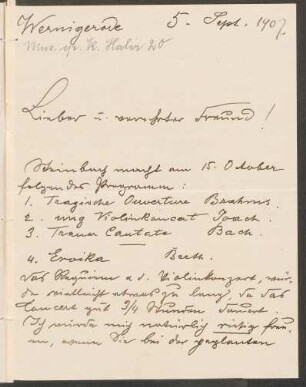 Wernigerode 5. Sept. 1907.
Mus. ep. K. Halir 20
Lieber u. verehrter Freund!
Steinbach macht am 15. October
folgendes Programm:
1. Tragische Ouverture Brahms.
2. ung Violinkonzert Joach.
3. Trauer Cantate Bach.
4. Eroika Beeth.
Das Requiem u. d. Violinkonzert, wür-
de vielleicht etwas zu lang, da das
Concert gut 3/4 Stunden dauert.
Ich würde mich natürlich riesig freu-
en, wenn Sie bei der geplanten